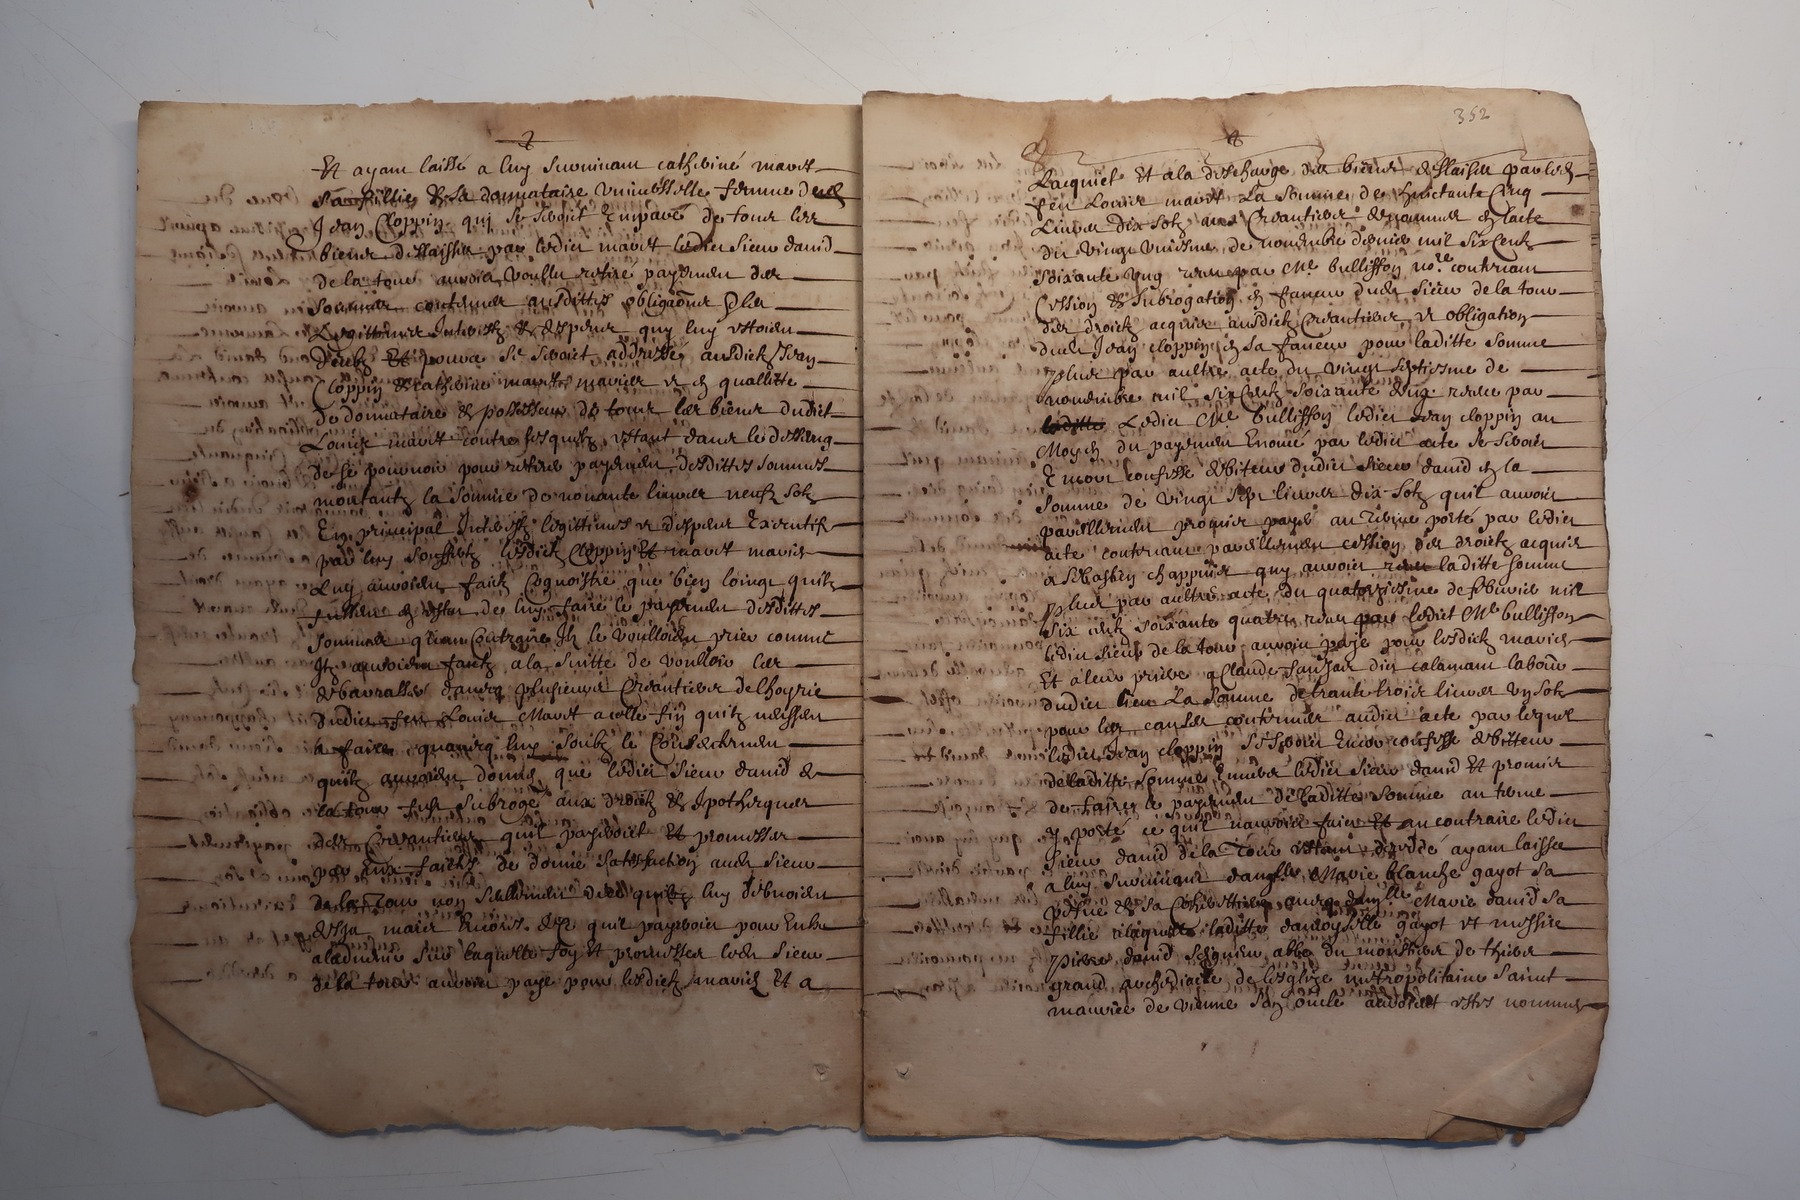 Et ayant laissé a luy survivant catherine mavet
sa fillie & sa donnataire universelle femme dud
Jean Cloppin qui se seroit Emparé de tous les
biens dellaissés par ledict mavet ledict sieur david
de la tour auroit voullu retiré payement des
sommes contenues ausdittes obligaōns & les
Legittimes Interestz & despens quy luy estoient
deubz Et pour ce se seroit addressé ausdictz Jean
Cloppin & catherine mavet mariés et en quallitte
de donnataire & possesseur de tous les biens dudict
Louis mavet contre lesquelz estant dans le desseing
de se pourvoir pour retirer payement desdittes sommes
montantz la somme de nonante livres neufz solz
En principal Interestz legittimes et despens Executifz
par luy soufferts lesdictz Cloppin Et mavet mariés
Luy auroient faict Cognoistre que bien loingt quilz
fussent en estat de luy faire le payement desdittes
sommes quau Contraire Ilz le voulloient prier comme
Ilz auroient faictz a la suitte de voulloir les
desbarrasser davecq plusieurs Creantiers de lhoyrie
dudict feu Louis Mavet a celle fin quilz neussent
a faire quavecq luy soubz le Consentement
quilz auroient donné que ledict sieur david de
la tour fust subrogé aux droictz & Ipotheques
des Creantiers quil payeroit Et promesses
par Eux faictes de donner satisfaction aud sieur
de la Tour non seullement de ce quilz luy debvoient
desja mais Encores de ce quil payeroit pour Eulx
a ladvenir sur laquelle foy Et promesses led sieur
de la tour auroit payé pour lesdictz mariés Et a
352
Lacquict Et a la descharge des biens dellaissés par led
feu Louis mavet La somme de huictante Cinq
Livres dix solz aux Creantiers denommés en lacte
du vingt uniesme de novembre dernier mil six Centz
soixante ung receu par Me bullisson nore contenant
Cession & subrogation en faveur dudt sieur de la tour
des droictz acquis ausdictz Creantiers et obligation
dudt Jean cloppin en sa faveur pour laditte somme
Plus par aultre acte du vingt septiesme de
novembre mil six Centz soixante & ung receu par
Ledict Me bullisson ledict Jean cloppin au
Moyen du payement Enoncé par ledict acte se seroit
Encor confessé debiteur dudict sieur david en la
somme de vingt sept livres dix solz quil auroit
pareillement promis payer au terme porté par ledict
acte contenant pareillement cession des droictz acquis
a sebastien chappuis quy auroit receu laditte somme
Plus par aultre acte du quatorziesme de febvrier mil
six centz soixante quatre receu par ledict Me bullisson
ledict sieur de la tour auroit payé pour lesdictz mariés
Et a leur priere a Claude sauzat dict calamant laboureur
dudict lieu La somme de trante trois livres ung solz
pour les causes contenues audict acte par lequel
ledict Jean cloppin se seroict Encor confessé debiteur
de laditte somme Envers ledict sieur david Et promis
de faire le payement de laditte somme au terme
y porté ce quil nauroit faict Et au contraire ledict
sieur david de la Tour estant decedé ayant laissée
a luy survivant damlle Marie blanche gayot sa
femme & sa Coheritiere avecq damlle Marie david sa
fillie a laquelle laditte damoyselle gayot et messire
Pierre david seigneur abbé du monstier de thiers
grand archediacre de lesglize metropolitaine saint
maurice de vienne son oncle auroient estes nommes